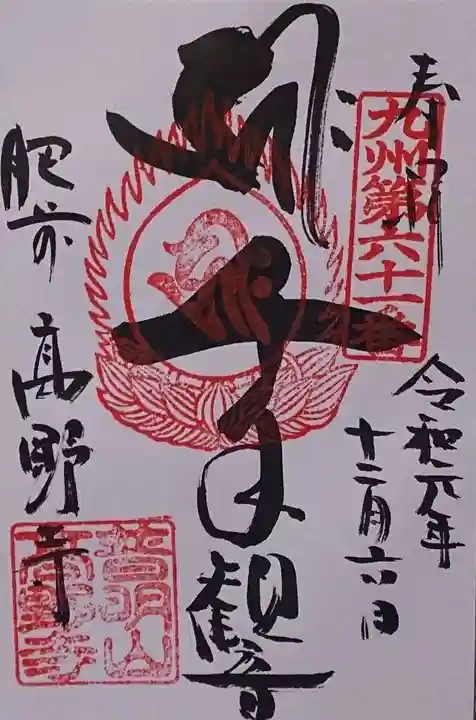 奉拝
九州第六十一番
令和元年
十二月六日
千手観音
肥前 高野寺
高野寺